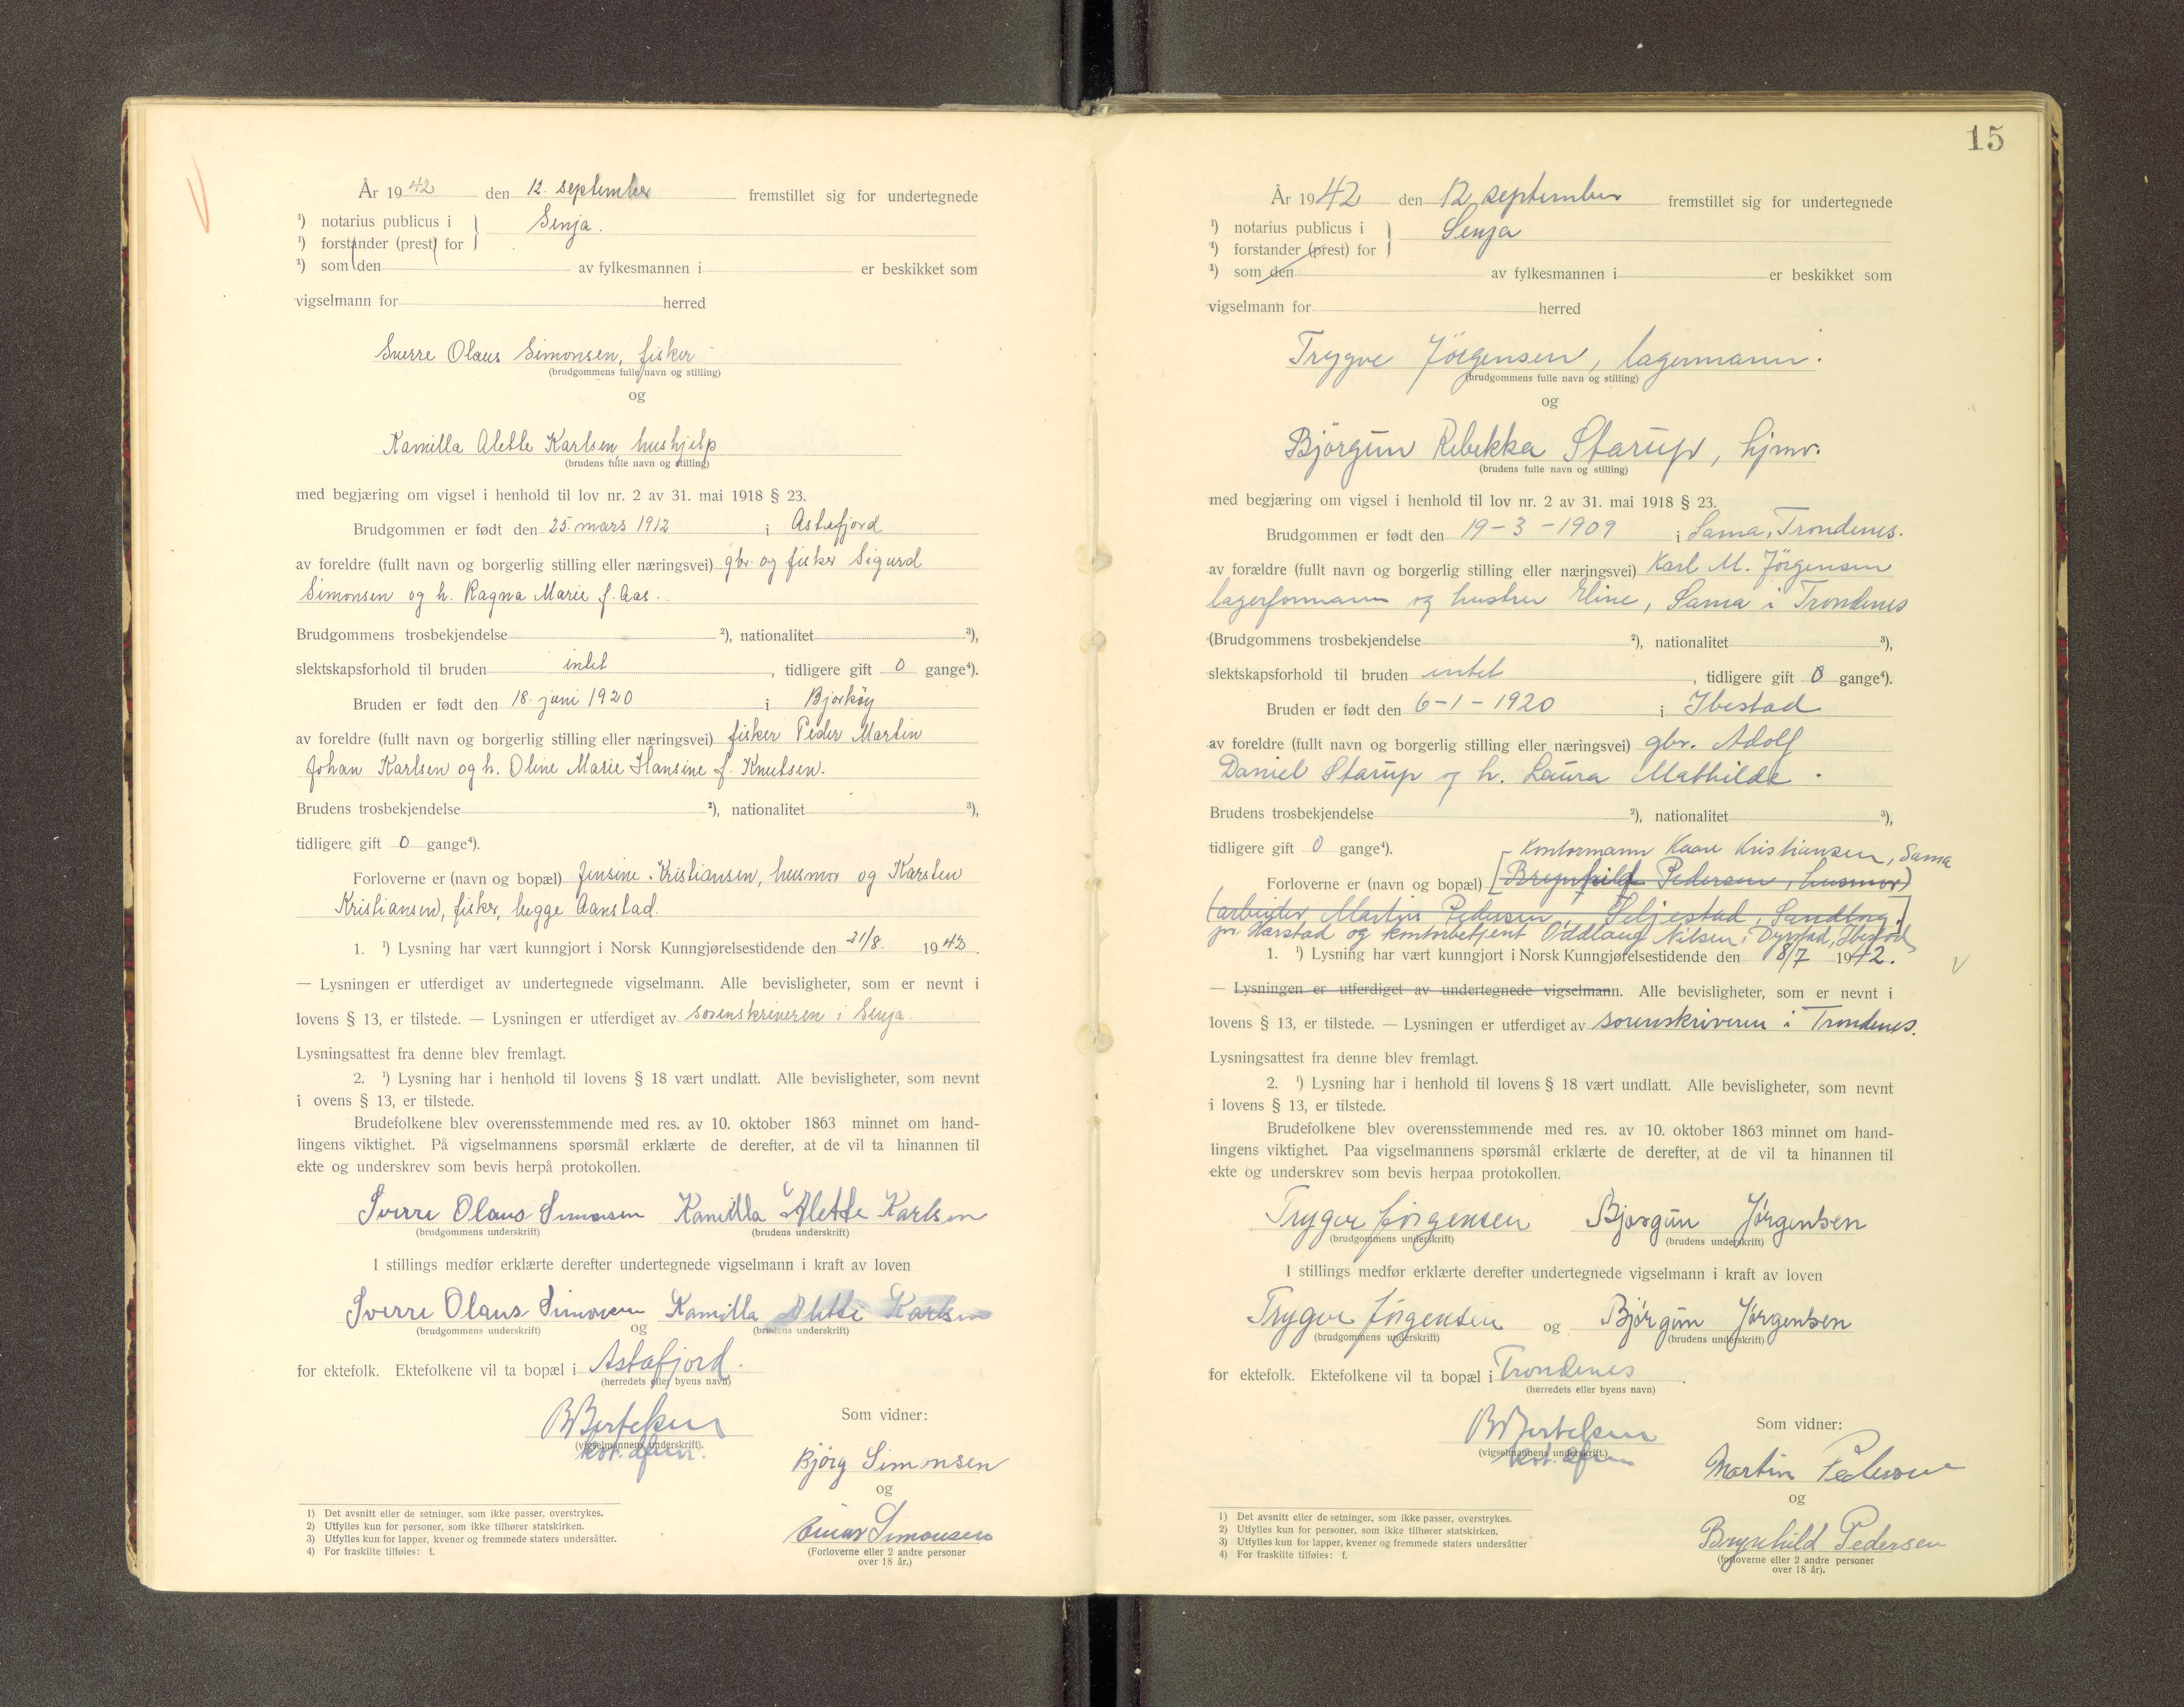 År 1942 den 12. september fremstillet sig for undertegnede
¹) notarius publicus i } Senja.
¹) forstander (prest) for
¹) som den av fylkesmannen i er beskikket som
vigselmann for herred
Sverre Olaus Simonsen, fisker
(brudgommens fulle navn og stilling)
og
Kamilla Alette Karlsen, hushjelp
(brudens fulle navn og stilling)
med begjæring om vigsel i henhold til lov nr. 2 av 31. mai 1918 § 23.
Brudgommen er født den 25. mars 1912 i Astafjord
av foreldre (fullt navn og borgerlig stilling eller næringsvei) gbr. og fisker Sigurd
Simonsen og h. Ragna Marie f. Aas.
Brudgommens trosbekjendelse ²), nationalitet ³),
slektskapsforhold til bruden intet , tidligere gift 0 gange⁴).
Bruden er født den 18. juni 1920 i Bjarkøy
av foreldre (fullt navn og borgerlig stilling eller næringsvei) fisker Peder Martin
Johan Karlsen og h. Oline Marie Hansine f. Knutsen.
Brudens trosbekjendelse ²), nationalitet ³),
tidligere gift 0 gange⁴).
Forloverne er (navn og bopæl) Jensine Kristiansen, husmor og Karsten
Kristiansen, fisker, begge Aanstad.
1. ¹) Lysning har vært kunngjort i Norsk Kunngjørelsestidende den 21/8. 1942.
— Lysningen er utferdiget av undertegnede vigselmann. Alle bevisligheter, som er nevnt i
lovens § 13, er tilstede. — Lysningen er utferdiget av sorenskriveren i Senja.
Lysningsattest fra denne blev fremlagt.
2. ¹) Lysning har i henhold til lovens § 18 vært undlatt. Alle bevisligheter, som nevnt
i ovens § 13, er tilstede.
Brudefolkene blev overensstemmende med res. av 10. oktober 1863 minnet om hand-
lingens viktighet. På vigselmannens spørsmål erklærte de derefter, at de vil ta hinannen til
ekte og underskrev som bevis herpå protokollen.
Sverre Olaus Simonsen Kamilla Alette Karlsen
(brudgommens underskrift) (brudens underskrift)
I stillings medfør erklærte derefter undertegnede vigselmann i kraft av loven
Sverre Olaus Simonsen og Kamilla Alette Karlsen
(brudgommens underskrift) (brudens underskrift)
for ektefolk. Ektefolkene vil ta bopæl i Astafjord.
(herredets eller byens navn)
B Bertelsen
(vigselmannens underskrift).
Som vidner:
Bjørg Simonsen
og
Einar Simonsen
(Forloverne eller 2 andre personer
over 18 år.)
1) Det avsnitt eller de setninger, som ikke passer, overstrykes.
2) Utfylles kun for personer, som ikke tilhører statskirken.
3) Utfylles kun for lapper, kvener og fremmede staters undersåtter.
4) For fraskilte tilføies: f.
15
År 1942 den 12 september fremstillet sig for undertegnede
¹) notarius publicus i } Senja
¹) forstander (prest) for
¹) som den av fylkesmannen i er beskikket som
vigselmann for herred
Trygve Jörgensen, lagermann.
(brudgommens fulle navn og stilling)
og
Björgun Rebekka Starup, hjmv.
(brudens fulle navn og stilling)
med begjæring om vigsel i henhold til lov nr. 2 av 31. mai 1918 § 23.
Brudgommen er født den 19-3-1909 i Sama, Trondenes.
av forældre (fullt navn og borgerlig stilling eller næringsvei) Karl M. Jörgensen
lagerformann og hustru Eline, Sama i Trondenes
(Brudgommens trosbekjendelse ²), nationalitet ³),
slektskapsforhold til bruden intet , tidligere gift 0 gange⁴).
Bruden er født den 6-1-1920 i Ibestad
av foreldre (fullt navn og borgerlig stilling eller næringsvei) gbr. Adolf
Daniel Starup og h. Laura Mathilde.
Brudens trosbekjendelse ²), nationalitet ³),
tidligere gift 0 gange⁴).
Kontormann Kaare Kristiansen, Sama
Forloverne er (navn og bopæl) [Brynhild Pedersen, husmor)
(arbeider Martin Pedersen, Seljestad, Sandtorg.]
pr. Harstad og kontorbetjent Oddlaug Nilsen, Dyrstad, Ibestad
1. ¹) Lysning har vært kunngjort i Norsk Kunngjørelsestidende den 8/7 1942.
— Lysningen er utferdiget av undertegnede vigselmann. Alle bevisligheter, som er nevnt i
lovens § 13, er tilstede. — Lysningen er utferdiget av sorenskriveren i Trondenes.
Lysningsattest fra denne blev fremlagt.
2. ¹) Lysning har i henhold til lovens § 18 vært undlatt. Alle bevisligheter, som nevnt
i lovens § 13, er tilstede.
Brudefolkene blev overensstemmende med res. av 10. oktober 1863 minnet om hand-
lingens viktighet. Paa vigselmannens spørsmål erklærte de derefter, at de vil ta hinannen til
ekte og underskrev som bevis herpaa protokollen.
Trygve Jörgensen Bjørgun Jørgensen
(brudgommens underskrift) (brudens underskrift)
I stillings medfør erklærte derefter undertegnede vigselmann i kraft av loven
Trygve Jörgensen og Bjørgun Jørgensen
(brudgommens underskrift) (brudens underskrift)
for ektefolk. Ektefolkene vil ta bopæl i Trondenes.
(herredets eller byens navn)
B Bertelsen
(vigselmannens underskrift.)
Som vidner:
Martin Pedersen
og
Brynhild Pedersen
(forloverne eller 2 andre personer
over 18 år).
1) Det avsnitt eller de setninger, som ikke passer, overstrykes.
2) Utfylles kun for personer, som ikke tilhører statskirken.
3) Utfylles kun for lapper, kvener og fremmede staters undersåtter
4) For fraskilte tilføies: f.